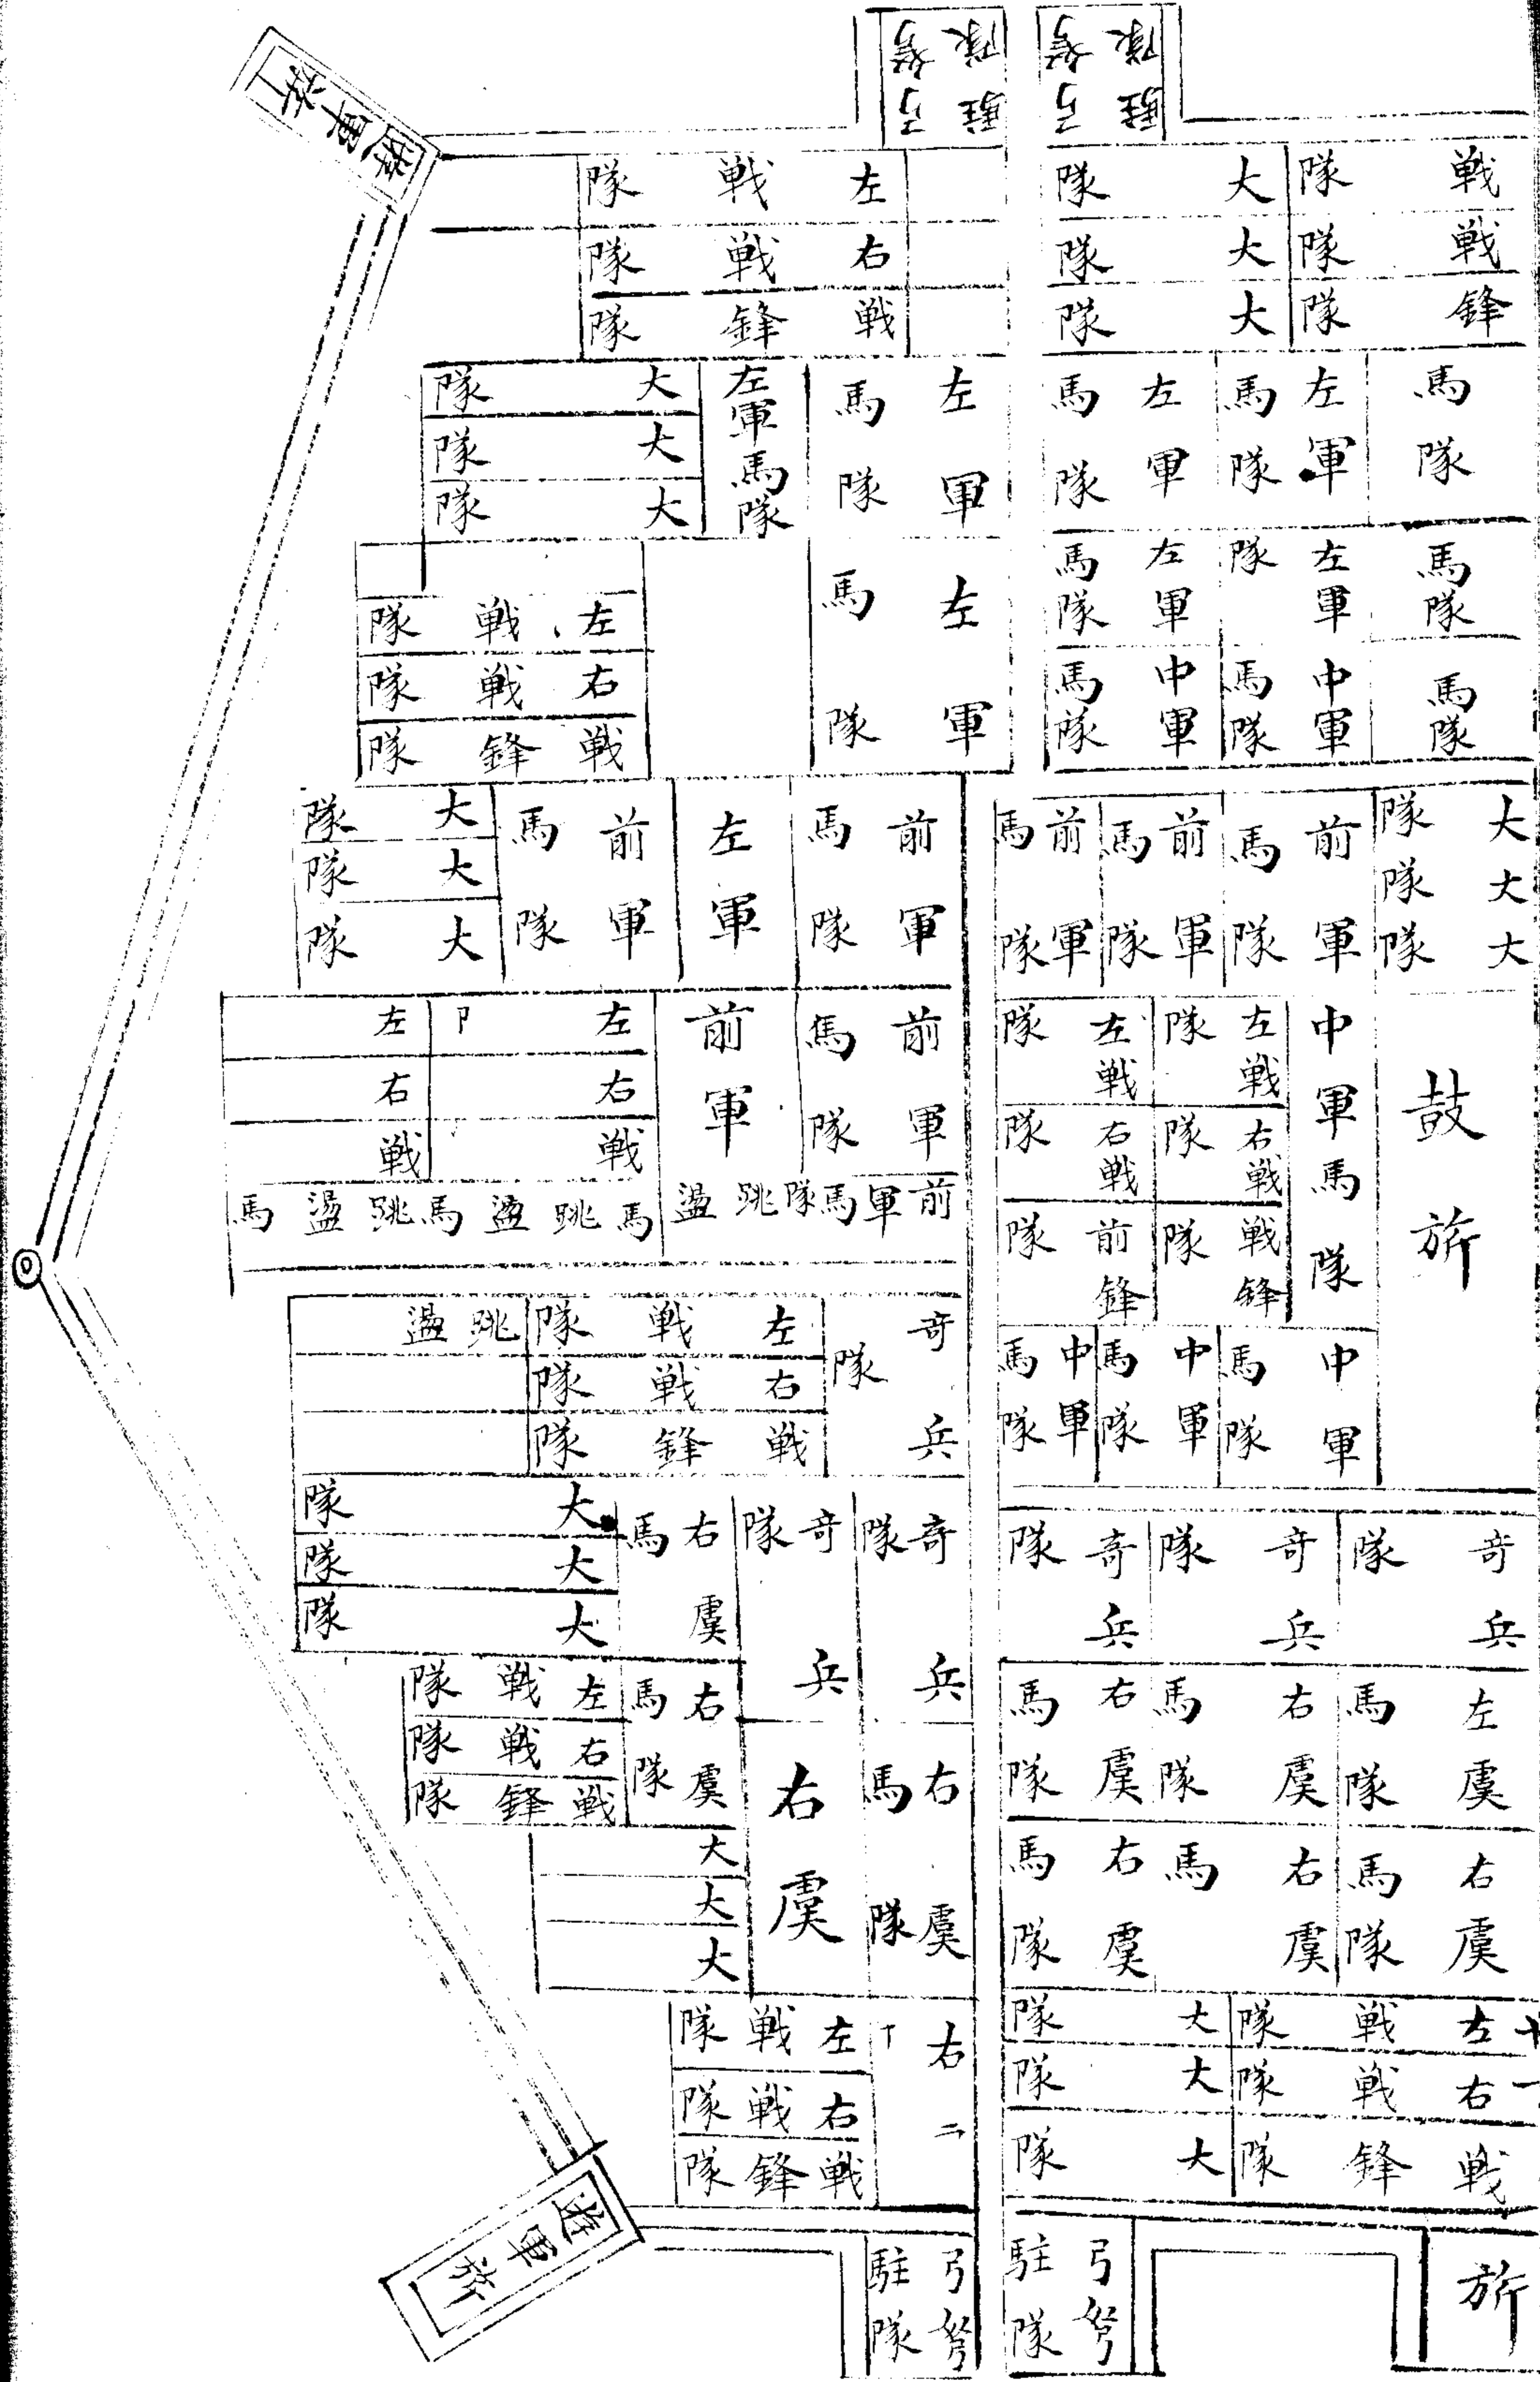 遊軍旂
弩弓 隊駐
弩弓 隊駐
左戰隊
右戰隊
戰鋒隊
大隊
大隊
大隊
戰隊
戰隊
鋒隊
大隊
大隊
大隊
左軍馬隊
左軍馬隊
左軍馬隊
左軍馬隊
馬隊
左戰隊
右戰隊
戰鋒隊
左軍馬隊
左軍馬隊
左軍隊
馬隊
中軍馬隊
中軍馬隊
馬隊
大隊
大隊
大隊
前軍馬隊
左軍
前軍馬隊
前軍馬隊
前軍馬隊
前軍馬隊
大隊
大隊
大隊
左
右
戰
左
右
戰
前軍
前軍馬隊
左戰隊
右戰隊
前鋒隊
左戰隊
右戰隊
戰鋒隊
中軍馬隊
鼓旂
前軍馬隊跳盪馬跳盪馬跳盪馬
跳盪
左戰隊
右戰隊
戰鋒隊
奇兵隊
中軍馬隊
中軍馬隊
中軍馬隊
大隊
大隊
大隊
右虞馬
奇兵隊
奇兵隊
奇兵隊
奇兵隊
奇兵隊
左戰隊
右戰隊
戰鋒隊
右虞馬隊
右虞
右虞馬隊
右虞馬隊
右虞馬隊
左虞馬隊
大
大
大
右虞馬隊
右虞馬
右虞馬隊
左戰隊
右戰隊
戰鋒隊
右
大隊
大隊
大隊
左戰隊
右戰隊
戰鋒隊
遊軍旂
弓弩駐隊
弓弩駐隊
旂